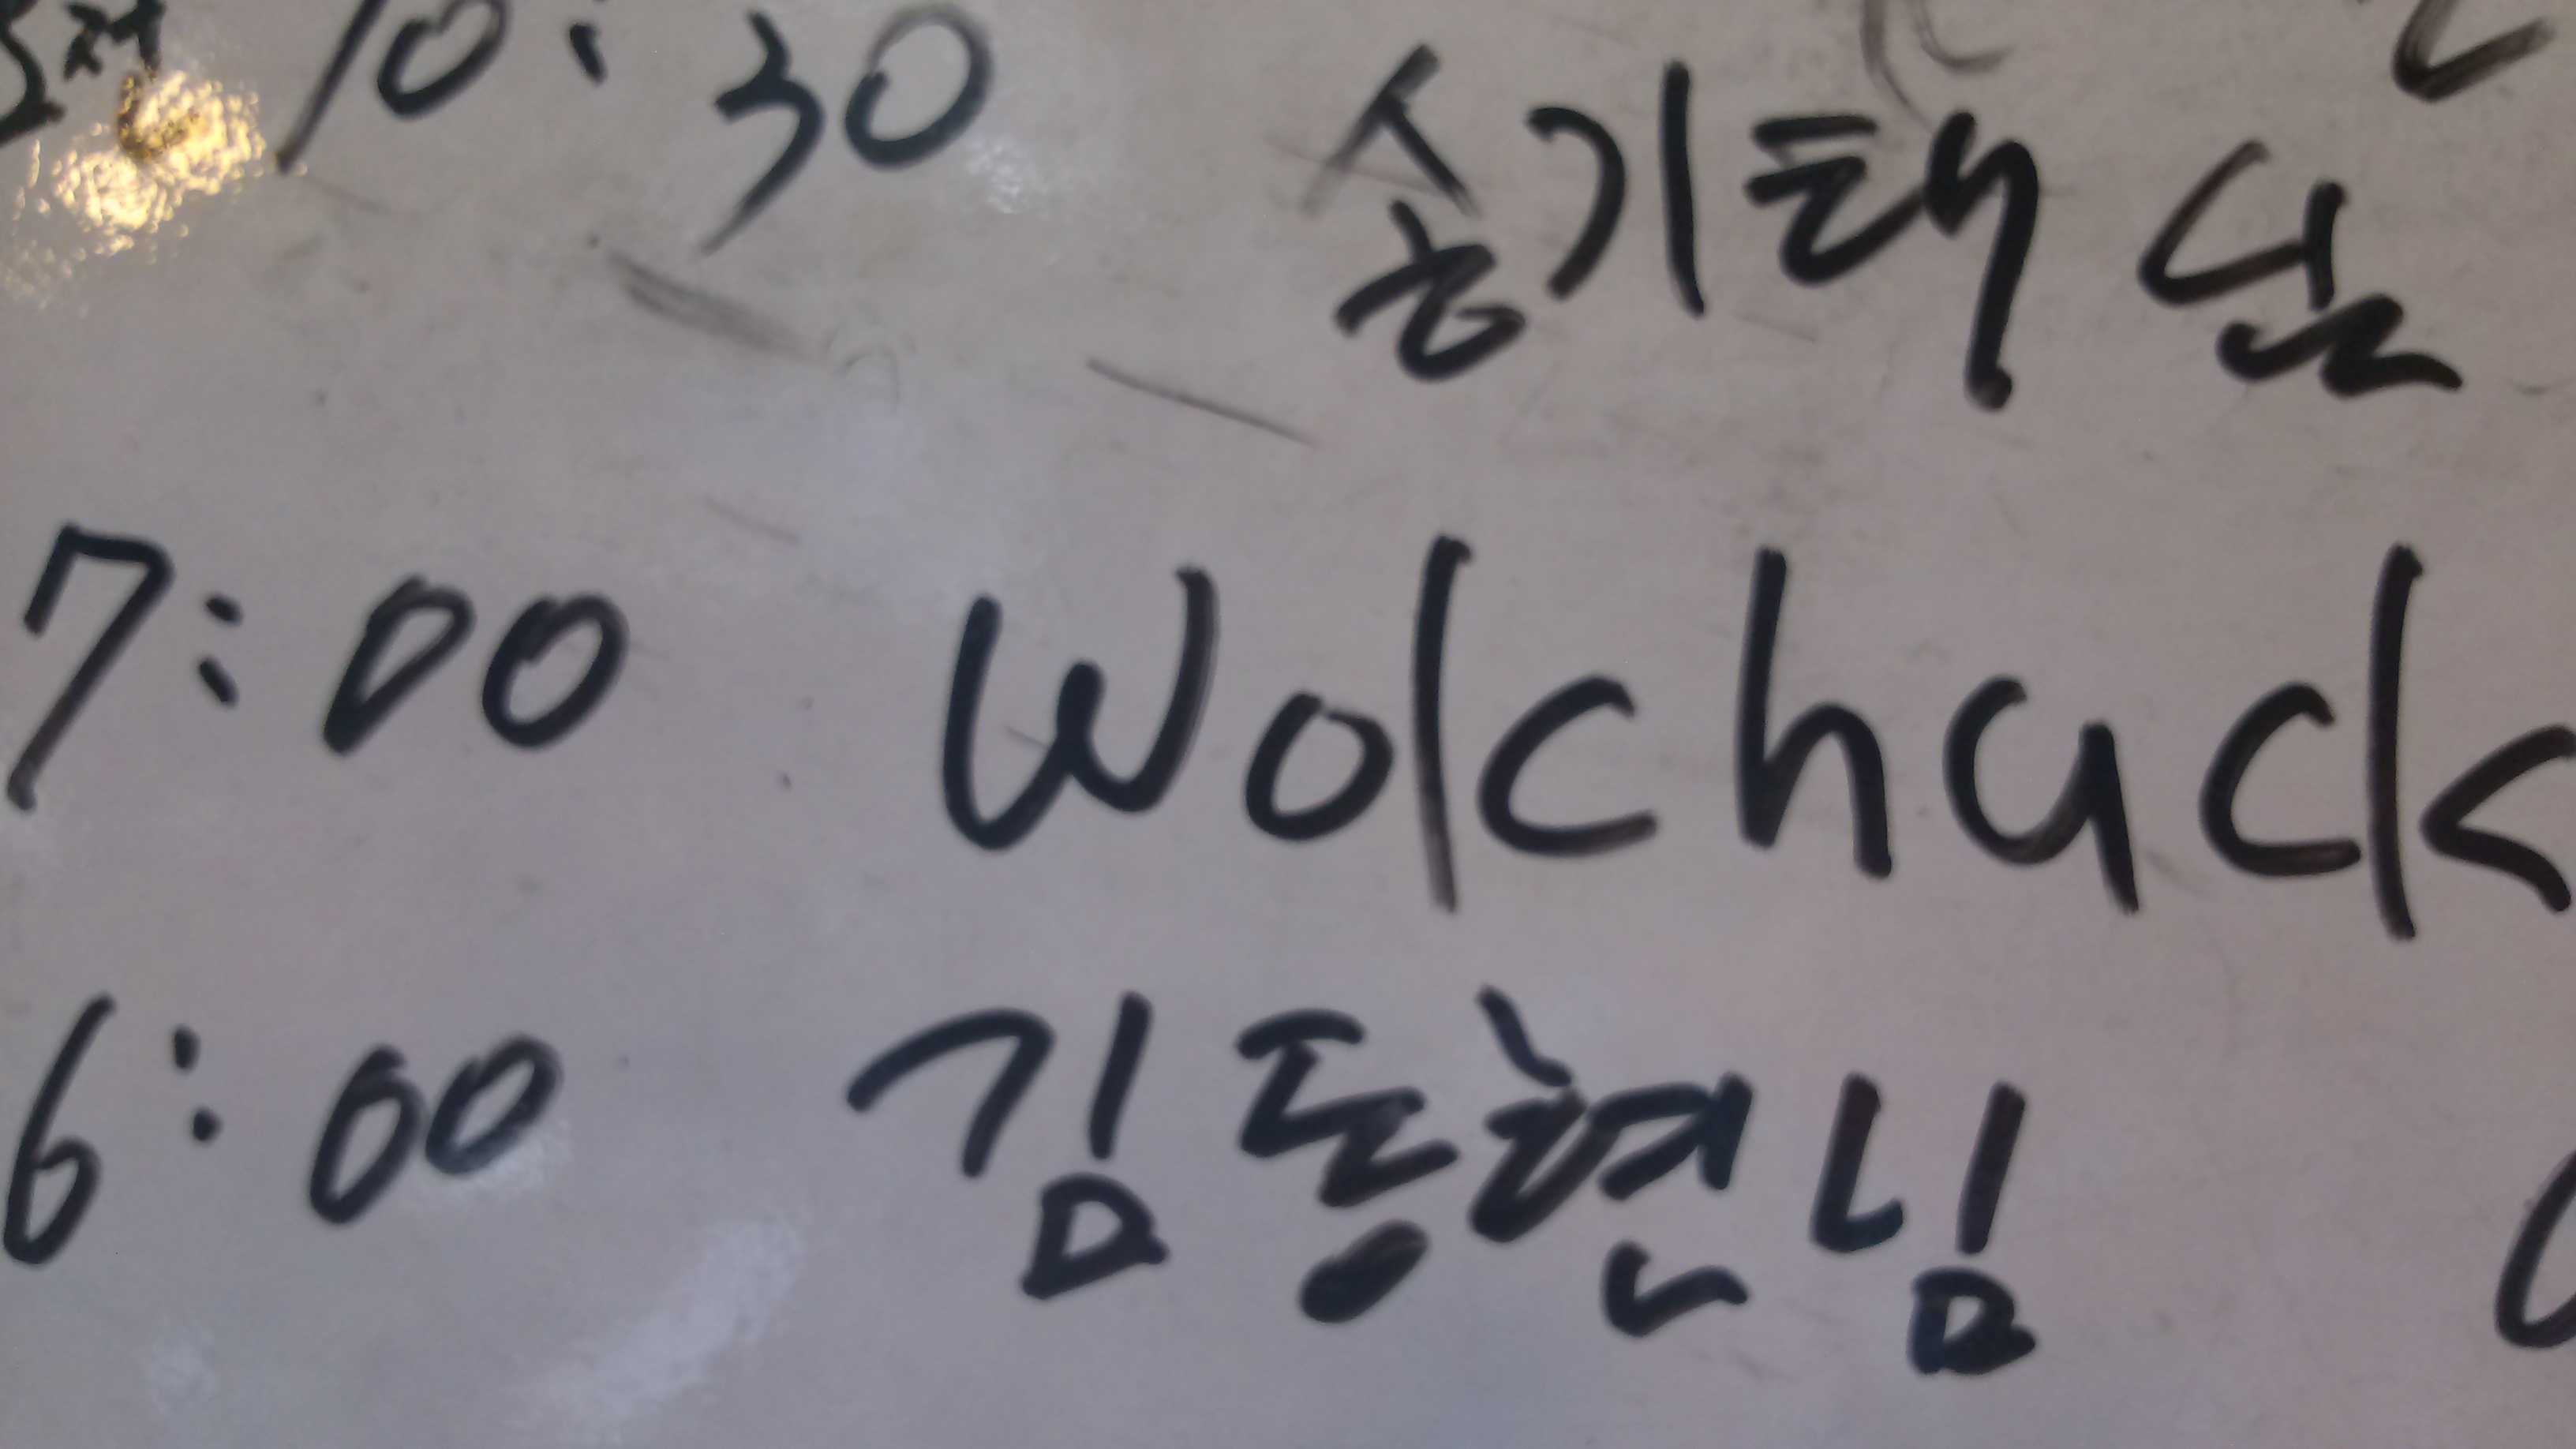 10:30 송기태 님
7:00 Wolchuck
6:00 김동현님